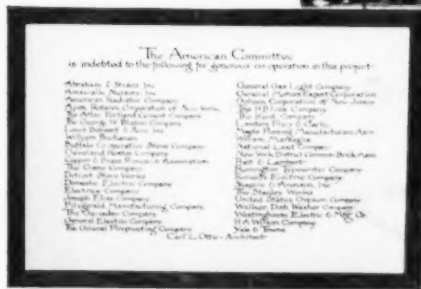 The American Committee
is indebted to the following for generous co-operation in this project
Abraham & Straus Inc
Amawalk Nursery Inc
American Radiator Company
Corporation of New York
The Atlas Portland Cement Company
The George W. Company
Louis Bossert & Sons Inc
William Buchanan
Buffalo Co-operative Stove Company
Cleveland Company
Copper & Brass Research Association
The Crane Company
Detroit Stove Works
Domestic Electric Company
Company
Joseph Company
Fitzgerald Manufacturing Company
The Company
General Electric Company
The General Fireproofing Company
General Gas Light Company
General Motors Export Corporation
Corporation of New Jersey
The Company
The Kent Company
Landers Frary & Clark
Maple Flooring Manufacturers Assn
William
National Lead Company
New York District Common Brick Assn
& Lambert
Remington Typewriter Company
Company
& Inc
The Company
United States Gypsum Company
Walker Dish Washer Company
Westinghouse Electric & Mfg Co
Wilson Company
Yale & Towne
Carl L. Otto - Architect